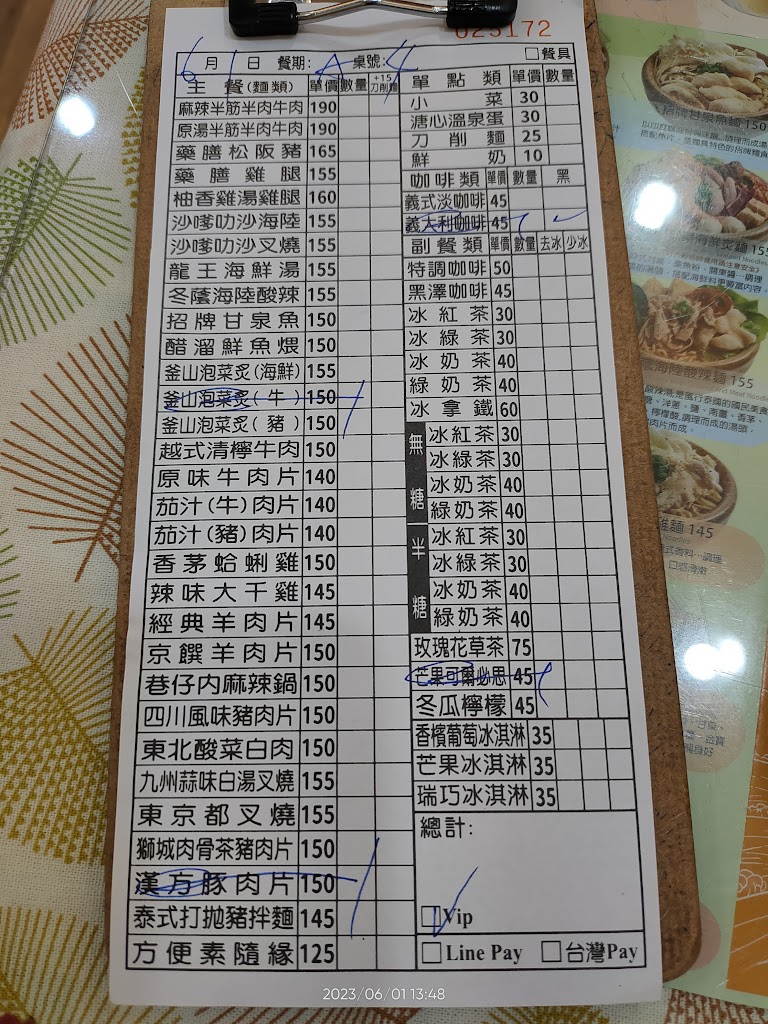 023172
6月1日 餐期: A 桌號: 4 □餐具
主餐(麵類) 單價 數量 +15刀削麵
麻辣半筋半肉牛肉 190
原湯半筋半肉牛肉 190
藥膳松阪豬 165
藥膳雞腿 155
柚香雞湯雞腿 160
沙嗲叻沙海陸 155
沙嗲叻沙叉燒 155
龍王海鮮湯 155
冬蔭海陸酸辣 155
招牌甘泉魚 150
醋溜鮮魚煨 150
釜山泡菜炙(海鮮) 155
釜山泡菜炙(牛) 150
釜山泡菜炙(豬) 150
越式清檸牛肉 150
原味牛肉片 140
茄汁(牛)肉片 140
茄汁(豬)肉片 140
香茅蛤蜊雞 150
辣味大千雞 145
經典羊肉片 145
京饌羊肉片 150
巷仔內麻辣鍋 150
四川風味豬肉片 150
東北酸菜白肉 150
九州蒜味白湯叉燒 155
東京都叉燒 155
獅城肉骨茶豬肉片 150
漢方豚肉片 150
泰式打拋豬拌麵 145
方便素隨緣 125
單點類 單價 數量
小菜 30
溏心溫泉蛋 30
刀削麵 25
鮮奶 10
咖啡類 單價 數量 黑
義式淡咖啡 45
義大利咖啡 45
副餐類 單價 數量 去冰 少冰
特調咖啡 50
黑澤咖啡 45
冰紅茶 30
冰綠茶 30
冰奶茶 40
綠奶茶 40
冰拿鐵 60
無糖
冰紅茶 30
冰綠茶 30
冰奶茶 40
綠奶茶 40
半糖
冰紅茶 30
冰綠茶 30
冰奶茶 40
綠奶茶 40
玫瑰花草茶 75
芒果可爾必思 45
冬瓜檸檬 45
香檳葡萄冰淇淋 35
芒果冰淇淋 35
瑞巧冰淇淋 35
總計:
□Vip
□Line Pay □台灣Pay
招牌甘泉魚麵 150
155
海陸酸辣麵 155
雞麵 145
2023/06/01 13:48